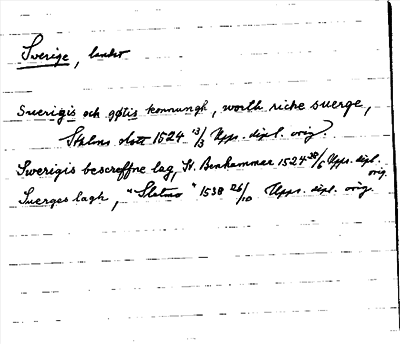 Sverige, landet
Suerigis och gøtis konnungh, worth riche suerge,
Sthlms slott 1524 13/3 Upps. dipl. orig.
Swerigis bescreffne lag, St. Benhammer 1524 30/6 Upps. dipl.
orig.
Suerges lagh, "Sletmo" 1538 26/10 Upps. dipl. orig.